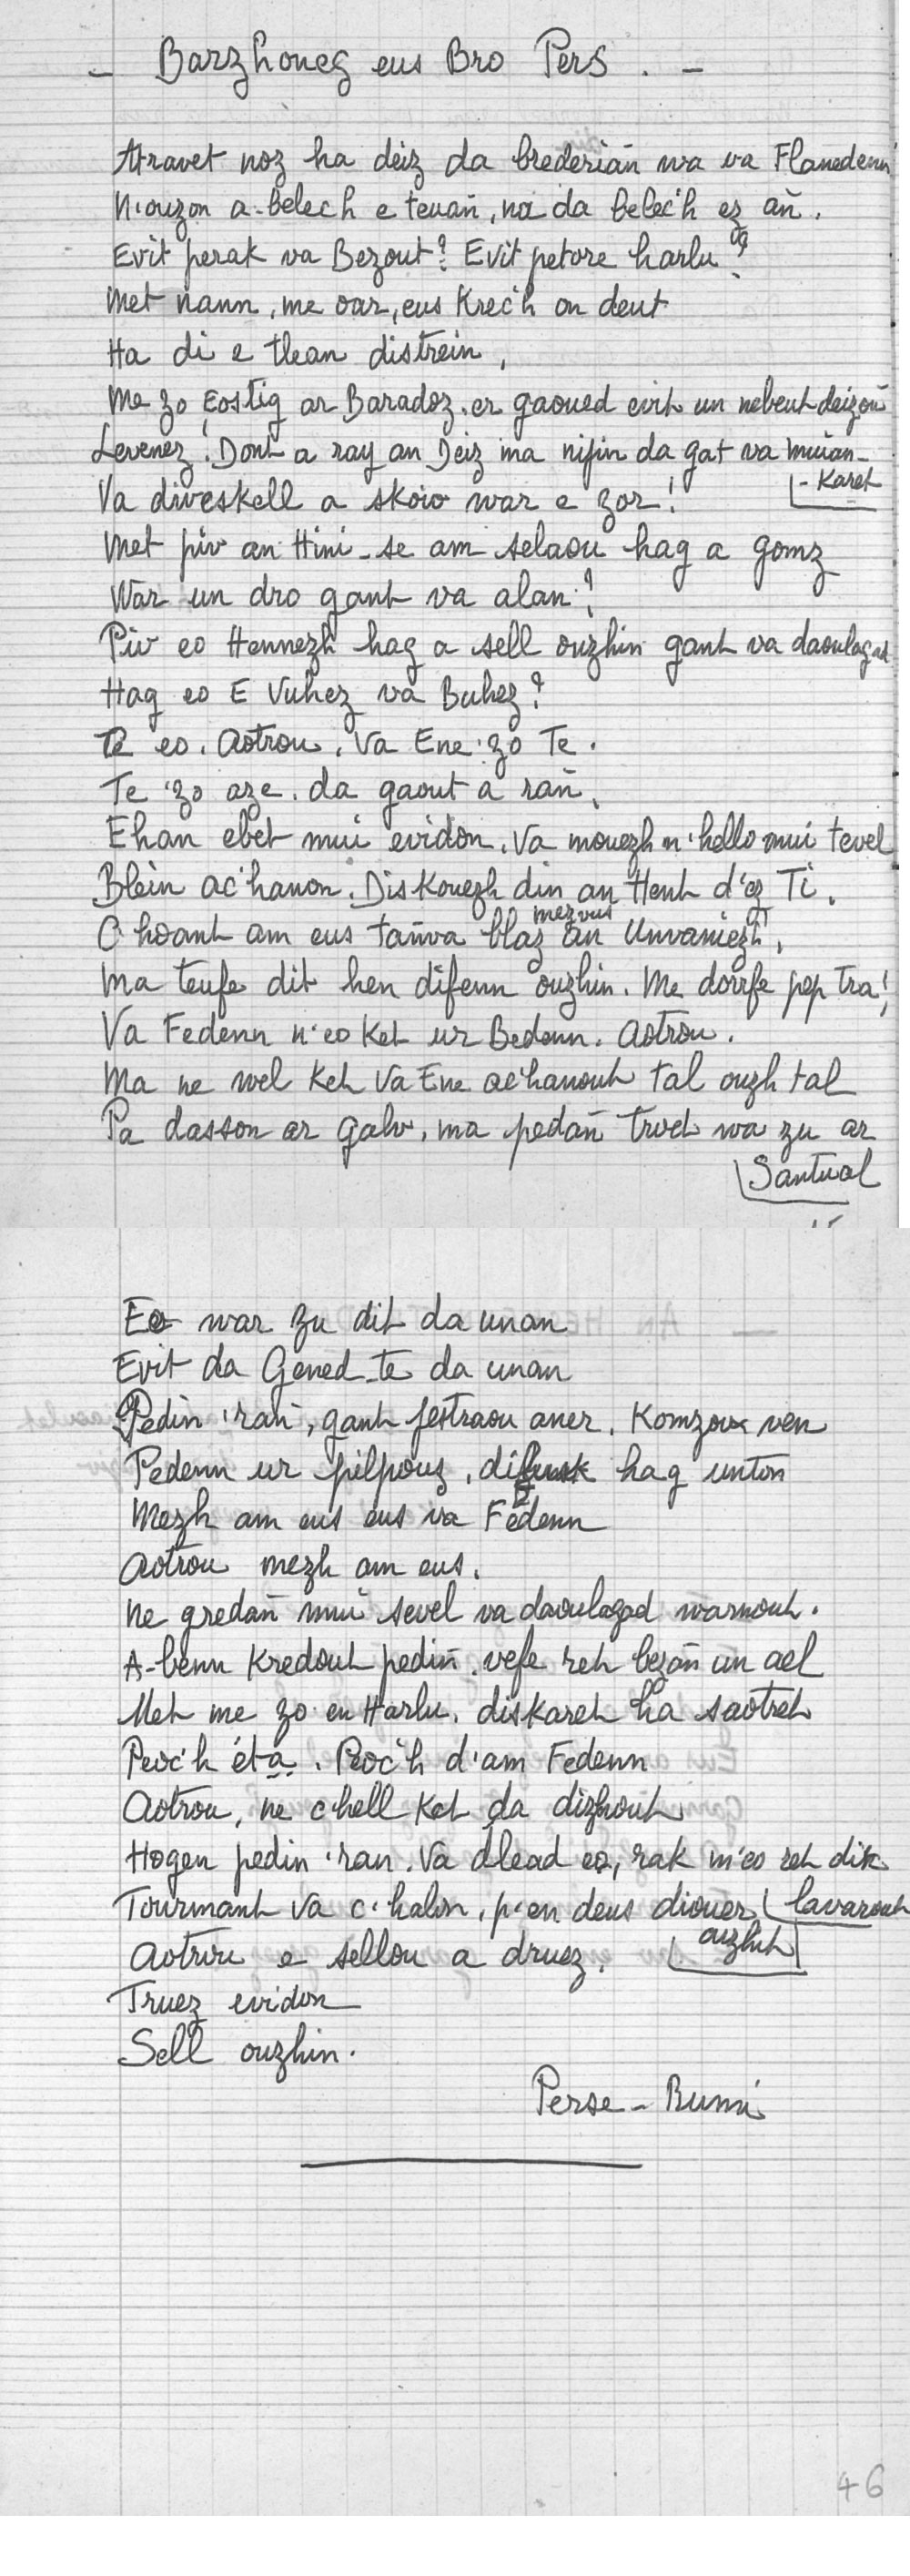 - Barzhoneg eus Bro Pers . -
Atravet noz ha deiz da brederiañ wa va Flanedenn
N'ouzon a-belec'h e teuañ, na da belec'h ez añ.
Evit perak va Bezout? Evit petore harlu?
Met nann, me oar, eus Krec'h on deut
Ha di e tlean distrein,
Me zo Eostig ar Baradoz, er gaoued evit un nebeut deizoù
Levenez! Dont a ray an Deiz ma nijin da gat va muian-
-Karet
Va diveskell a skoio war e zor!
Met piv an Hini-se am selaou hag a gomz
War un dro gant va alan?
Piv eo Hennezh hag a sell ouzhin gant va daoulagad
Hag eo E Vuhez va Buhez?
Te eo, Aotrou, Va Ene 'zo Te.
Te 'zo aze, da gaout a rañ,
Ehan ebet mui evidon, Va mouezh n'hello mui tevel
Blein ac'hanon. Diskouezh din an Hent d'ez Ti,
C'hoant am eus tañva blaz mezvus an Unvaniezh,
Ma teufe dit hen difenn ouzhin. Me dorrfe pep Tra!
Va Fedenn n'eo Ket ur Bedenn, Aotrou.
Ma ne wel Ket Va Ene ac'hanout tal ouzh tal
Pa dasson ar Galv, ma pedañ troet wa zu ar
Santual
Eo war zu dit da unan
Evit da Gened-te da unan
Pedin 'rañ, gant jestraou aner, Komzou ven
Pedenn ur pilpouz, hag unton
Mezh am eus eus va Fedenn
Aotrou mezh am eus.
Ne gredañ mui sevel va daoulagad warnout.
A-benn Kredout pediñ, vefe ret bezañ un ael
Met me zo en Harlu, diskaret ha saotret
Peoc'h éta. Peoc'h d'am Fedenn
Aotrou, ne c'hell Ket da dizhout
Hogen pedin 'ran, Va dlead eo, rak m'eo ret din
Tourmant va c'halon, p'en deus diouer lavarout
ouzhit
Aotrou e sellou a druez.
Truez evidon
Sell ouzhin.
Perse - Rumi
46